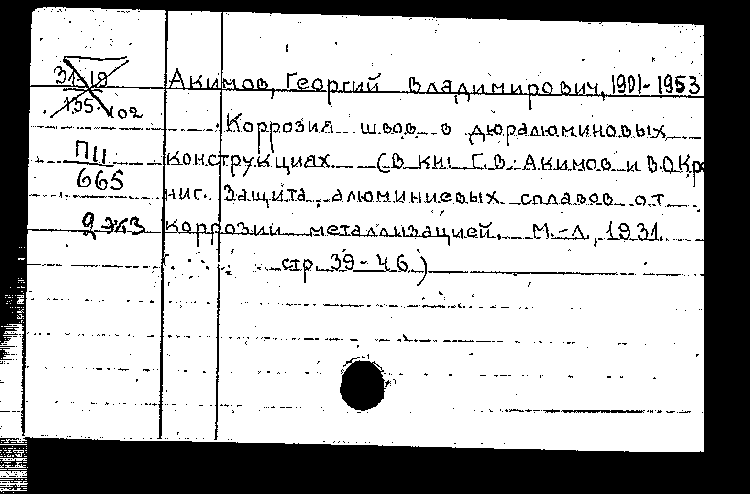 31-19
135.102
Акимов, Георгий Владимирович, 1901-1953
Коррозия швов в дюралюминовых
П11
665
конструкциях (В кн: Г.В. Акимов и В.О.Кро
ниг. Защита алюминиевых сплавов от
2 экз
коррозии металлизацией. М.-Л, 1931.
стр. 39-46)